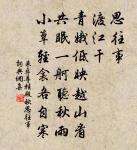 思往事
渡江干
青蛾低映越山看
共眠一舸聽秋雨
小簟輕衾各自寒
朱彝尊桂殿秋思往事